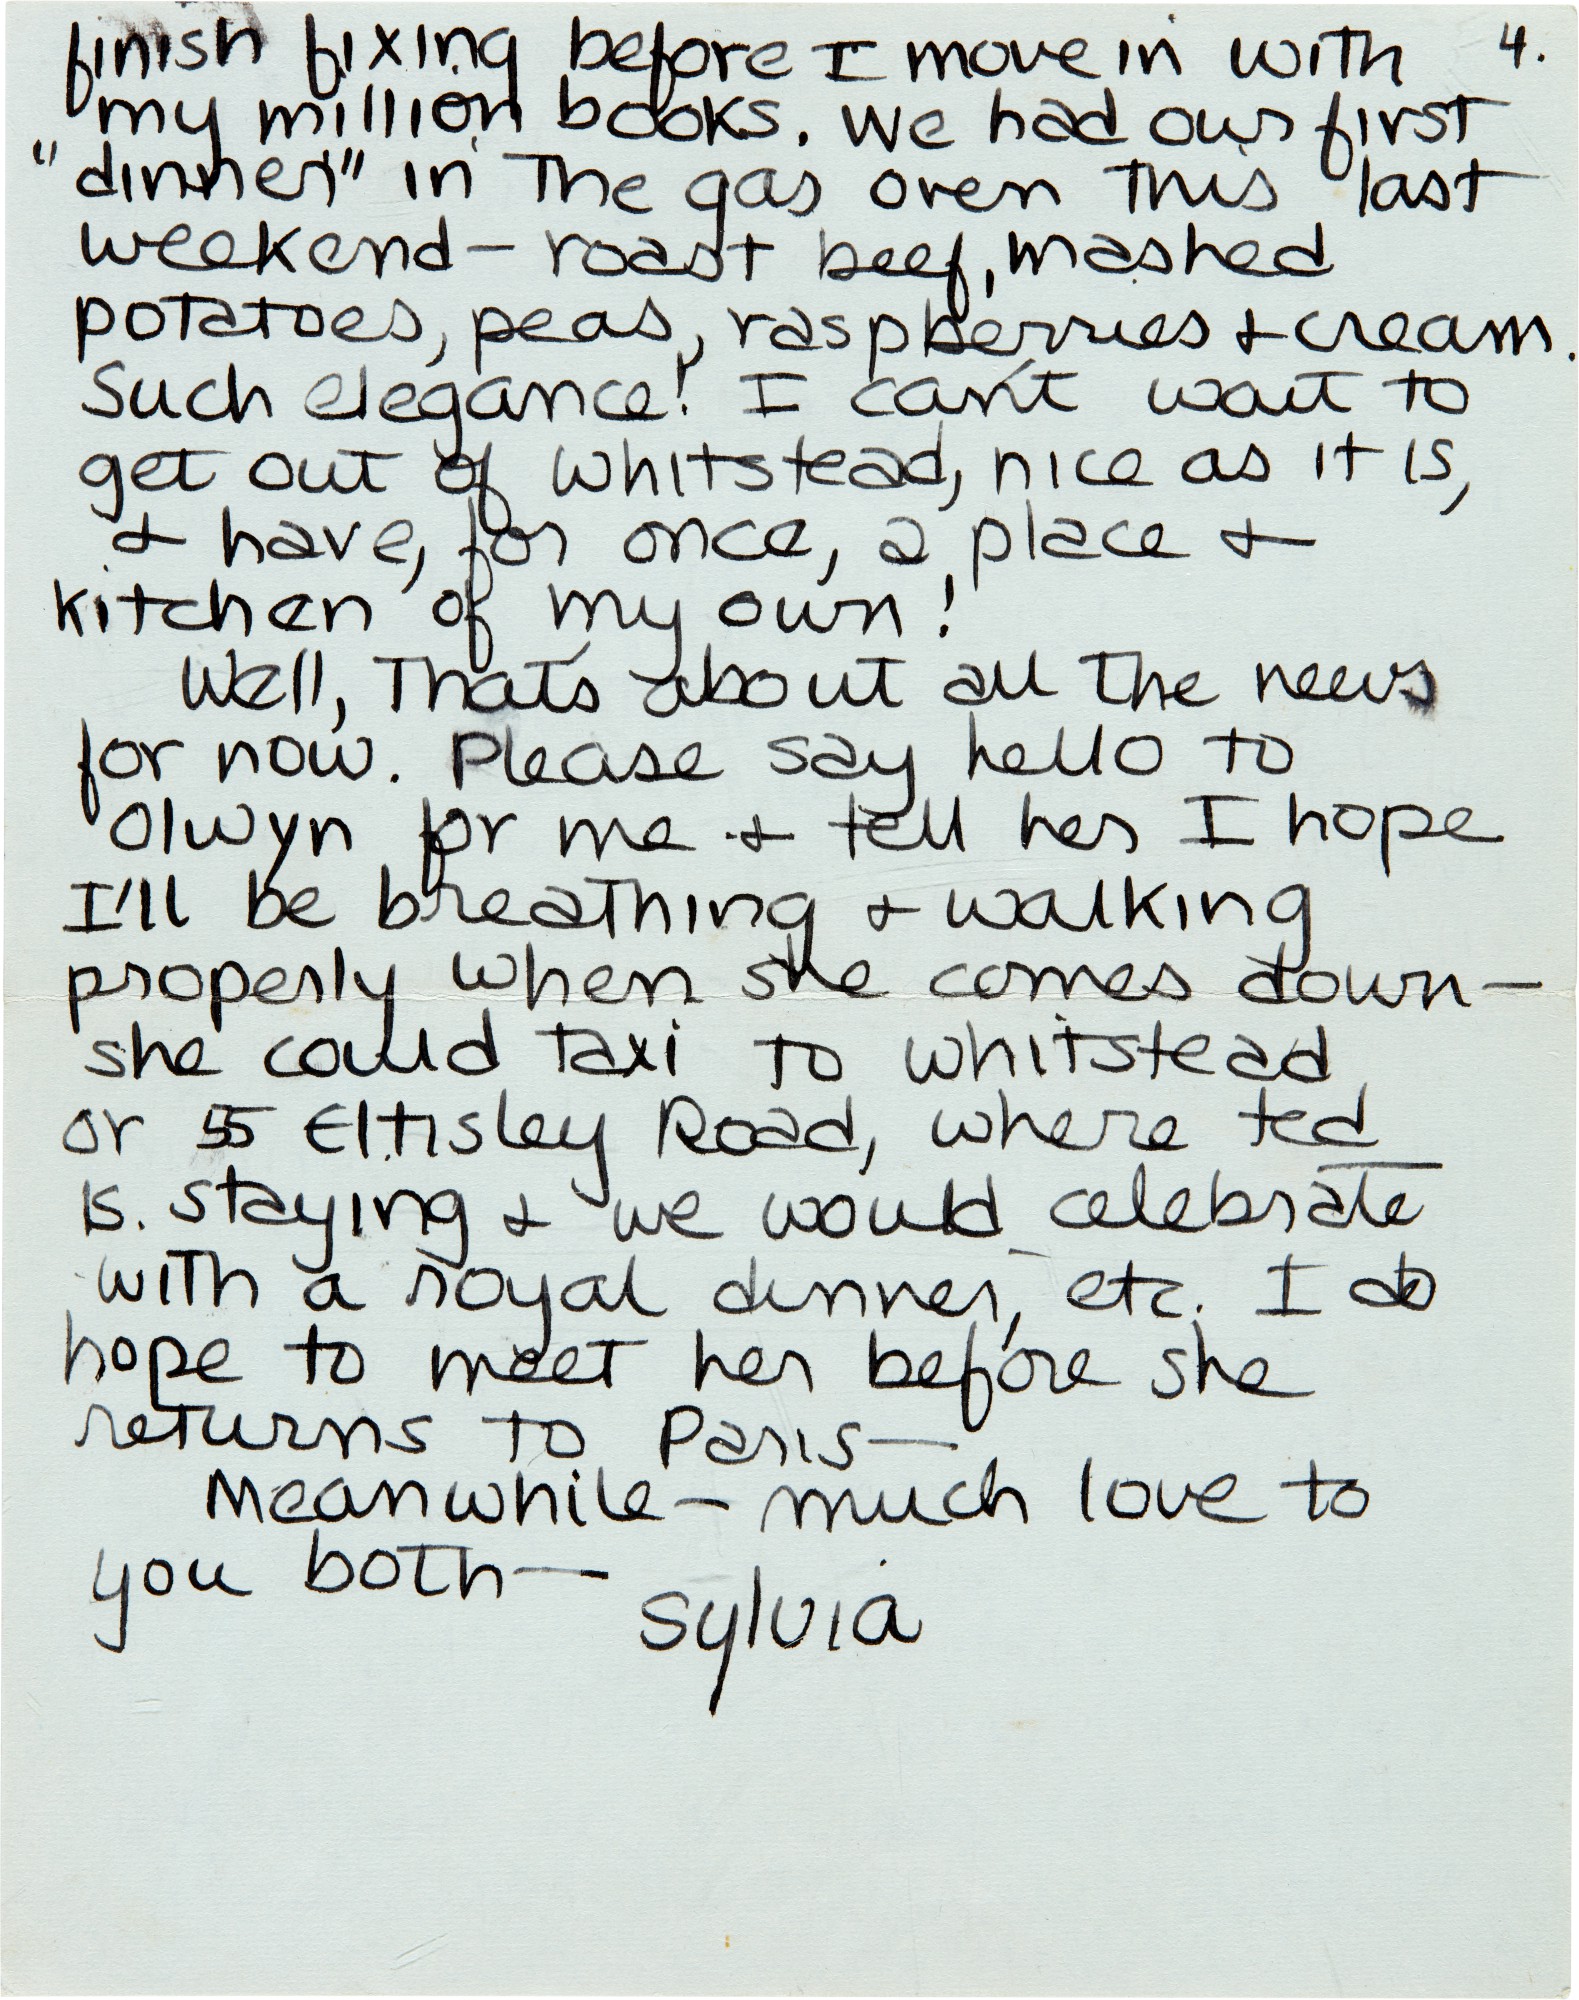 finish fixing before I move in with 4.
my million books. We had our first
"dinner" in the gas oven this last
weekend — roast beef, mashed
potatoes, peas, raspberries + cream.
Such elegance! I can't wait to
get out of Whitstead, nice as it is,
+ have, for once, a place +
kitchen of my own!
Well, that's about all the news
for now. Please say hello to
Olwyn for me + tell her I hope
I'll be breathing + walking
properly when she comes down —
she could taxi to Whitstead
or 55 Eltisley Road, where Ted
is staying + we would celebrate
with a royal dinner, etc. I do
hope to meet her before she
returns to Paris —
Meanwhile — much love to
you both —
Sylvia